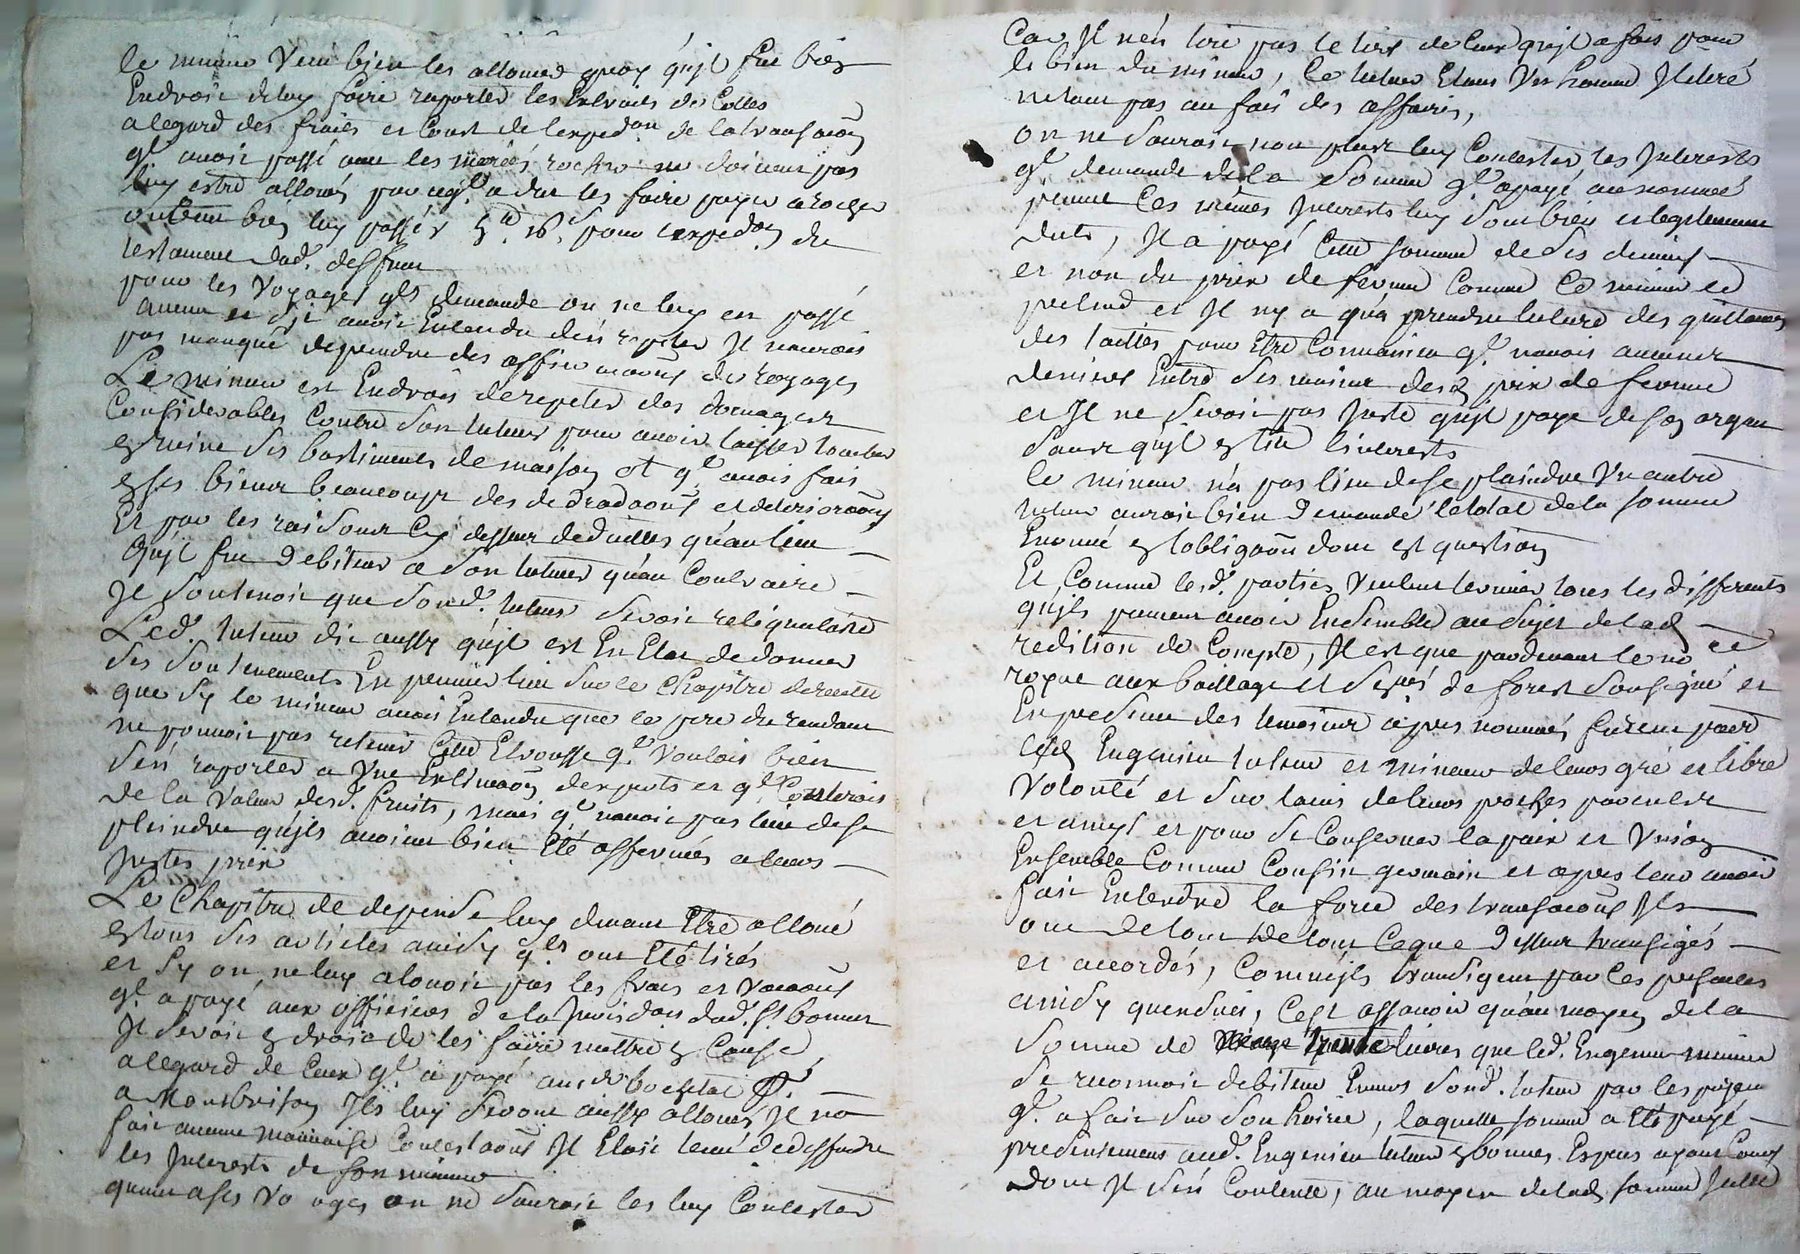 le mineur veut bien les allouer quoy qu'il fut bien
Endroit de luy faire raporter les Extraits des Cottes
a legard des fraies et Coust de lexpedon de la transaction
ql avoit passé avec les mariés rochw ne doivent pas
luy estre alloués parceql a deu les faire payer a rocher
on veut bien luy passer 5ll 16s pour lexpedon du
testament dud. deffunt
pour les voyages qls demande on ne luy en passe
aucun et s'il avoit Entendu den repeter Il nauroit
pas manqué de prendre des affirmaons de voyages
Le mineur est Endroit de repeter des domages
Considerables Contre son tuteur pour avoir laisser tomber
en ruine ses bastiments de maison et ql avoit fait
en ses biens beaucoup des degradaons et deterioraons
Et par les raisons Cy dessus deduittes qu'au lieu
Qu'il fut debiteur a son tuteur qu'au Contraire
Il soutenoit que sond. tuteur seroit reliquataire
Led. tuteur dit aussy qu'il est En Etat de donner
ses soutenements En premier lieu sur le Chapitre de recette
que sy le mineur avoit Entendu que le pere du rendant
ne pouvoit pas retenir Cette Etrousse ql vouloit bien
s'en raporter a Une Estimaon dexperts et ql Conteroit
de la valeur desd. fruits, mais ql navoit pas lieu de se
plaindre qu'ils avoient bien Eté affermés a leurs
justes prix
Le Chapitre de depense luy devant Etre alloué
en tous ses articles ainsy qls ont Eté tirés
et sy on ne luy alouoit pas les frais et vacaons
ql a payé aux officiers de la Jurisdon dud. St bonnet
Il seroit en droit de les faire mettre en Cause
a legard de Ceux ql a payé au sr bochetal Pr.
a Montbrison Ils luy seront aussy alloués Il na
fait aucune mauvaise Contestaons Il Etoit tenu de deffendre
les Interests de son mineur
quant a ses voyages on ne sauroit les luy Contester
Car Il nen tire pas le tiers de Ceux qu'il a fais pour
le bien du mineur, le tuteur Etant Un homme Illitere
netant pas au fait des affaires,
on ne sauroit non plus luy Contester les Interests
ql demande de la somme ql a payé au nommé
Ces mêmes Interests luy sont bien et legitimement
duts, Il a payé Cette somme de ses deniers
et non du prix de ferme Comme Ce mineur le
pretend et Il ny a qu'a prendre lecture des quittances
des tailles pour Etre Convaincu ql navoit aucuns
deniers Entre ses mains de prix de ferme
et Il ne seroit pas juste qu'il paye de son argent
sans qu'il en tire linterests
le mineur n'a pas lieu de se plaindre Un autre
tuteur auroit bien demandé le total de la somme
Enoncé en lobligaon dont est question
Et Comme lesd. parties veulent terminer tous les differents
qu'ils peuvent avoir Ensemble au sujet de lad
redition de Compte, Il est que pardevant le nore
royal aux baillage et senes de forest soussigné et
En presence des temoins cy apres nommés furent pard
lesd Eugenien tuteur et mineur de leurs gré et libre
volonté et sur lavis de leurs proches parents
et amys et pour se Conserver la paix et Union
Ensemble Comme Cousin germain et apres leur avoir
fait Entendre la force des transactions Ils
ont de tout de tout Ceque dessus transigés
et accordés, Comme ils transigent par Ces presentes
ainsy quensuit, C'est assavoir qu'au moyen de la
somme de trente livres que led. Eugenien mineur
se reconnoit debiteur Envers sond. tuteur par les payem
ql a fait sur son hoirie, laquelle somme a Eté payé
presentement aud. Eugenien tuteur en bonnes Especes ayant Cours
Dont Il s'en Contente, au moyen de lad somme